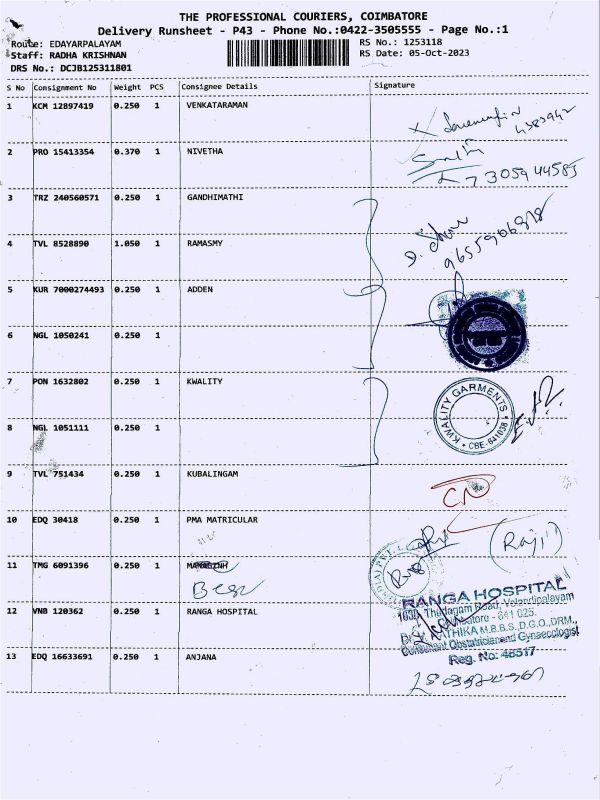 THE PROFESSIONAL COURIERS, COIMBATORE
Delivery Runsheet - P43 - Phone No.:0422-3505555 - Page No.:1
Route: EDAYARPALAYAM RS No.: 1253118
Staff: RADHA KRISHNAN RS Date: 05-Oct-2023
DRS No.: DCJB125311801
S No Consignment No Weight PCS Consignee Details Signature
1 KCM 12897419 0.250 1 VENKATARAMAN
2 PRO 15413354 0.370 1 NIVETHA
7305944585
3 TRZ 240560571 0.250 1 GANDHIMATHI
4 TVL 8528890 1.050 1 RAMASMY
5 KUR 7000274493 0.250 1 ADDEN
6 NGL 1050241 0.250 1
7 PON 1632802 0.250 1 KWALITY
KWALITY GARMENTS
CBE-641038
8 NGL 1051111 0.250 1
9 TVL 751434 0.250 1 KUBALINGAM
10 EDQ 30418 0.250 1 PMA MATRICULAR
(Raji)
11 TMG 6091396 0.250 1
RANGA HOSPITAL
Thadagam Road, Velandipalayam
641 025.
M.B.B.S.,D.G.O.,DRM.,
Consultant Obstetrician and Gynaecologist
Reg. No: 48517
12 VNB 120362 0.250 1 RANGA HOSPITAL
13 EDQ 16633691 0.250 1 ANJANA